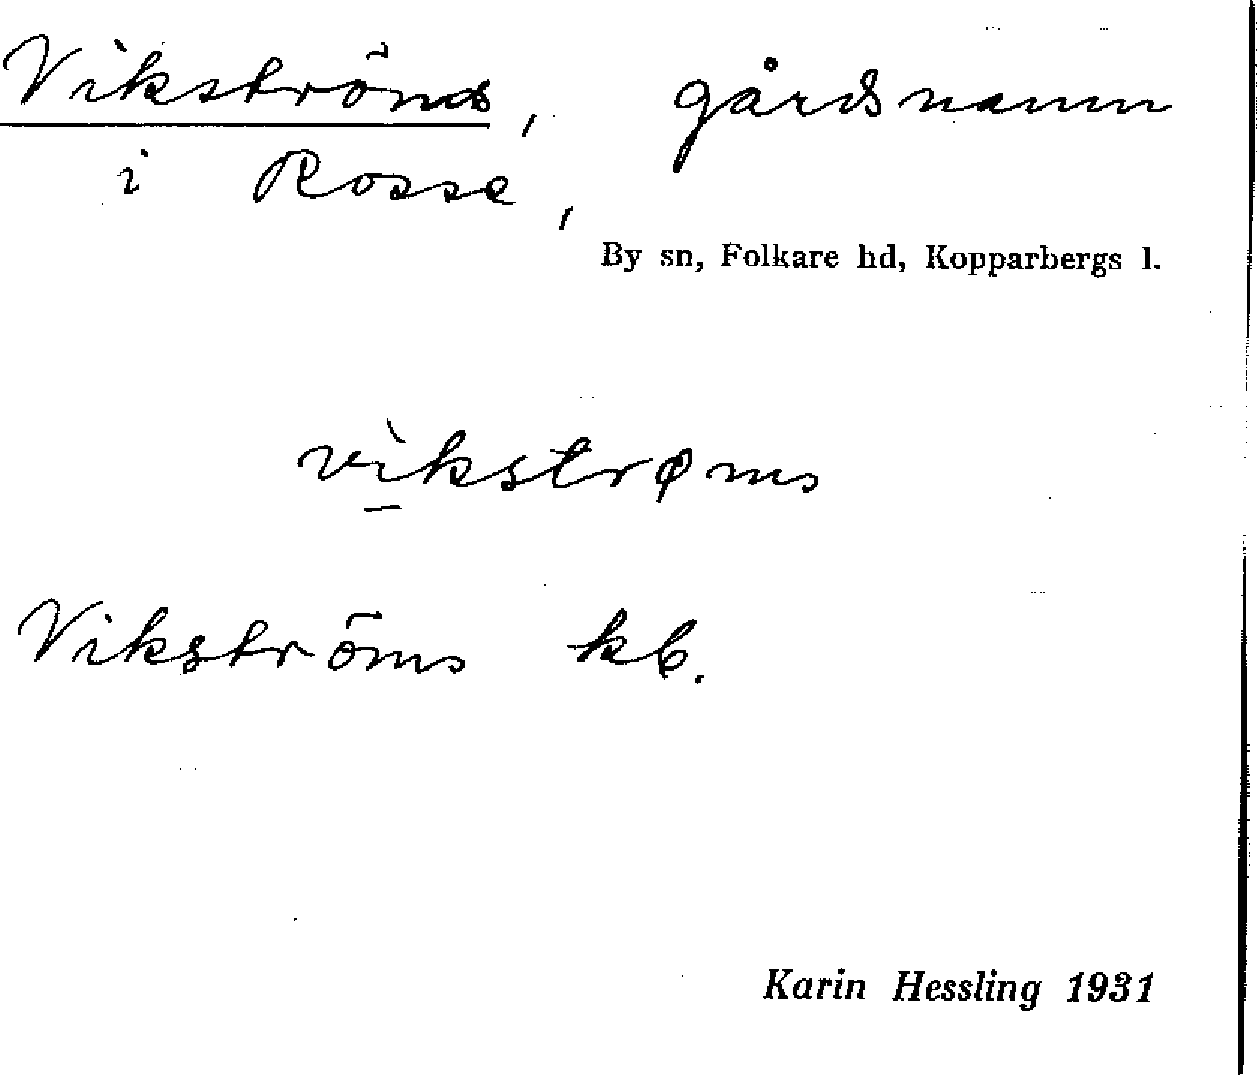 Vikströms, gårdsnamn
i Rosse,
By sn, Folkare hd, Kopparbergs l.
vìkstrøms
Vikströms kb.
Karin Hessling 1931